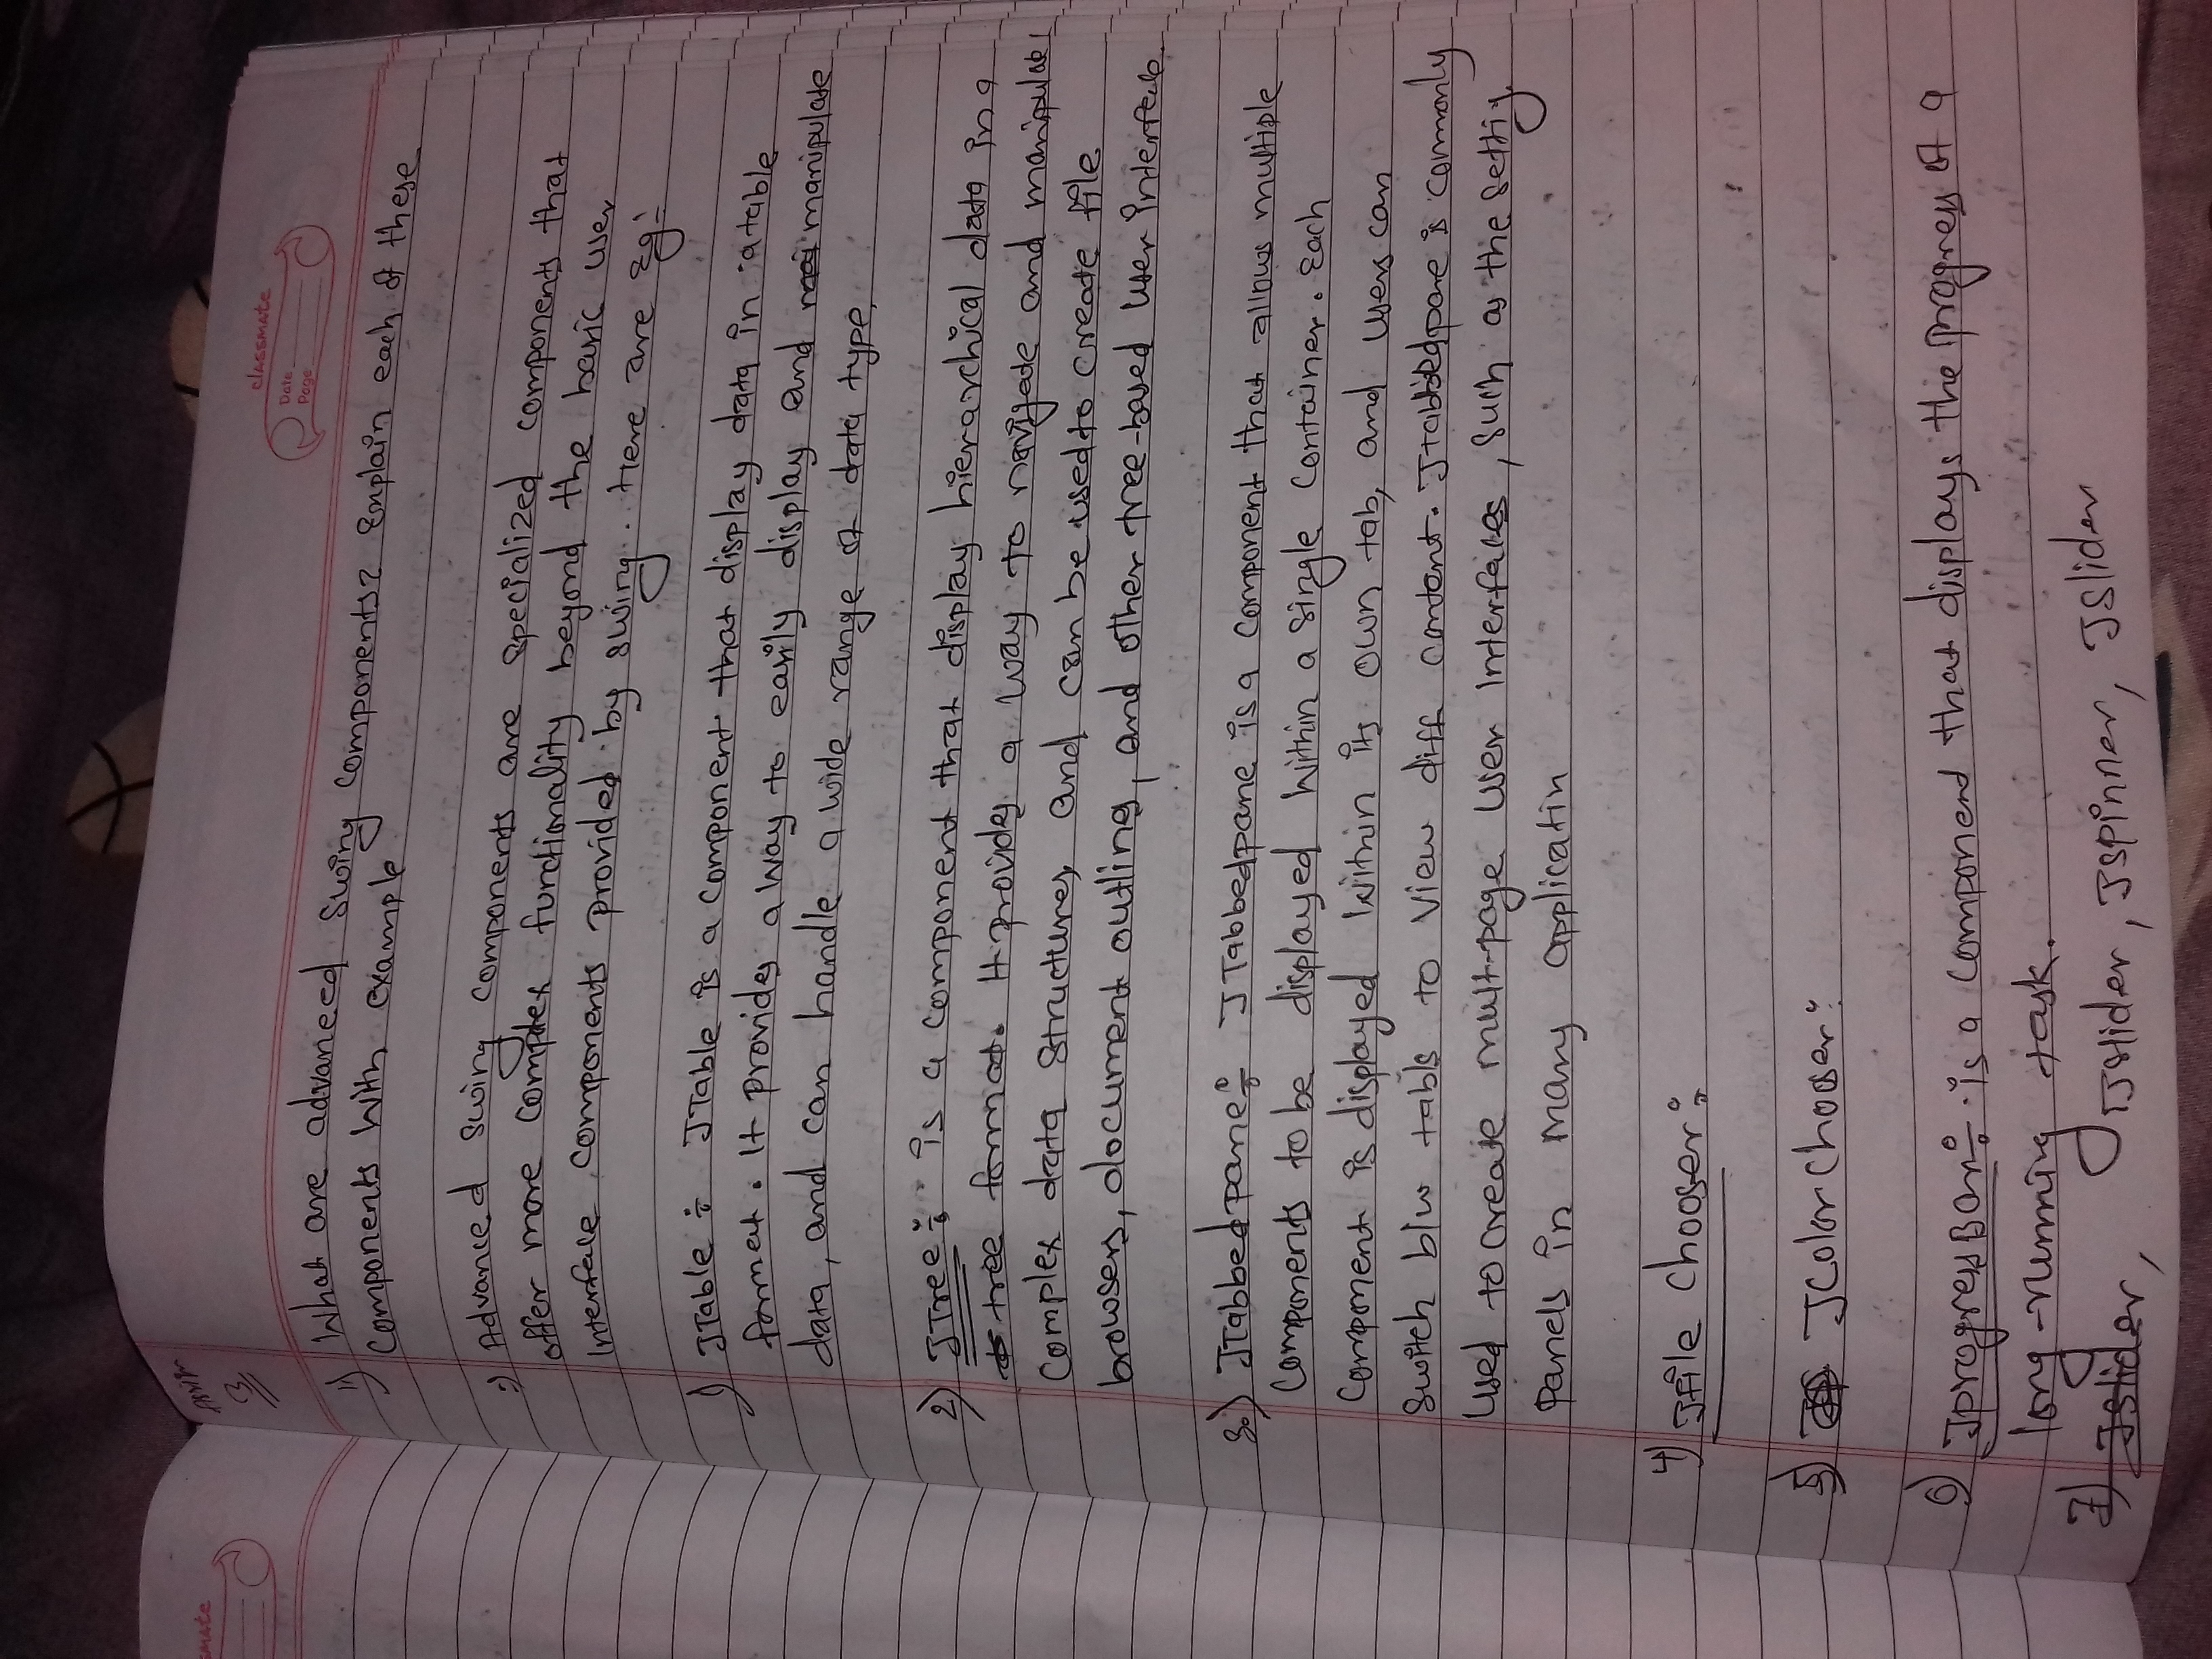 smate
Assign
3
classmate
Date
Page
1) What are advanced Swing components? Explain each of these
components with example
=) Advanced swing components are specialized components that
offer more complex functionality beyond the basic user
interface components provided by swing. Here are Eg:-
1) JTable :- JTable is a component that display data in a table
format. It provides a way to easily display and manipulate
data, and can handle a wide range of data type.
2) JTree :- is a component that display hierarchical data in a
tree format. It provides a way to navigate and manipulate
complex data structures, and can be used to create file
browsers, document outling, and other tree-based user interface.
3.) JTabbedpane :- JTabbedpane is a component that allows multiple
components to be displayed within a single container. Each
component is displayed within its own tab, and users can
switch b/w tabls to view diff content. Jtabbedpane is commonly
used to create mult-page user interfaces, such as the settig
panels in many applicatin
4) Jfile Chooser :-
5) JColorChooser :
6) JprogressBar :- is a component that displays the progress of a
long-running task.
7) Jslider, JSlider, Jspinner, JSlider